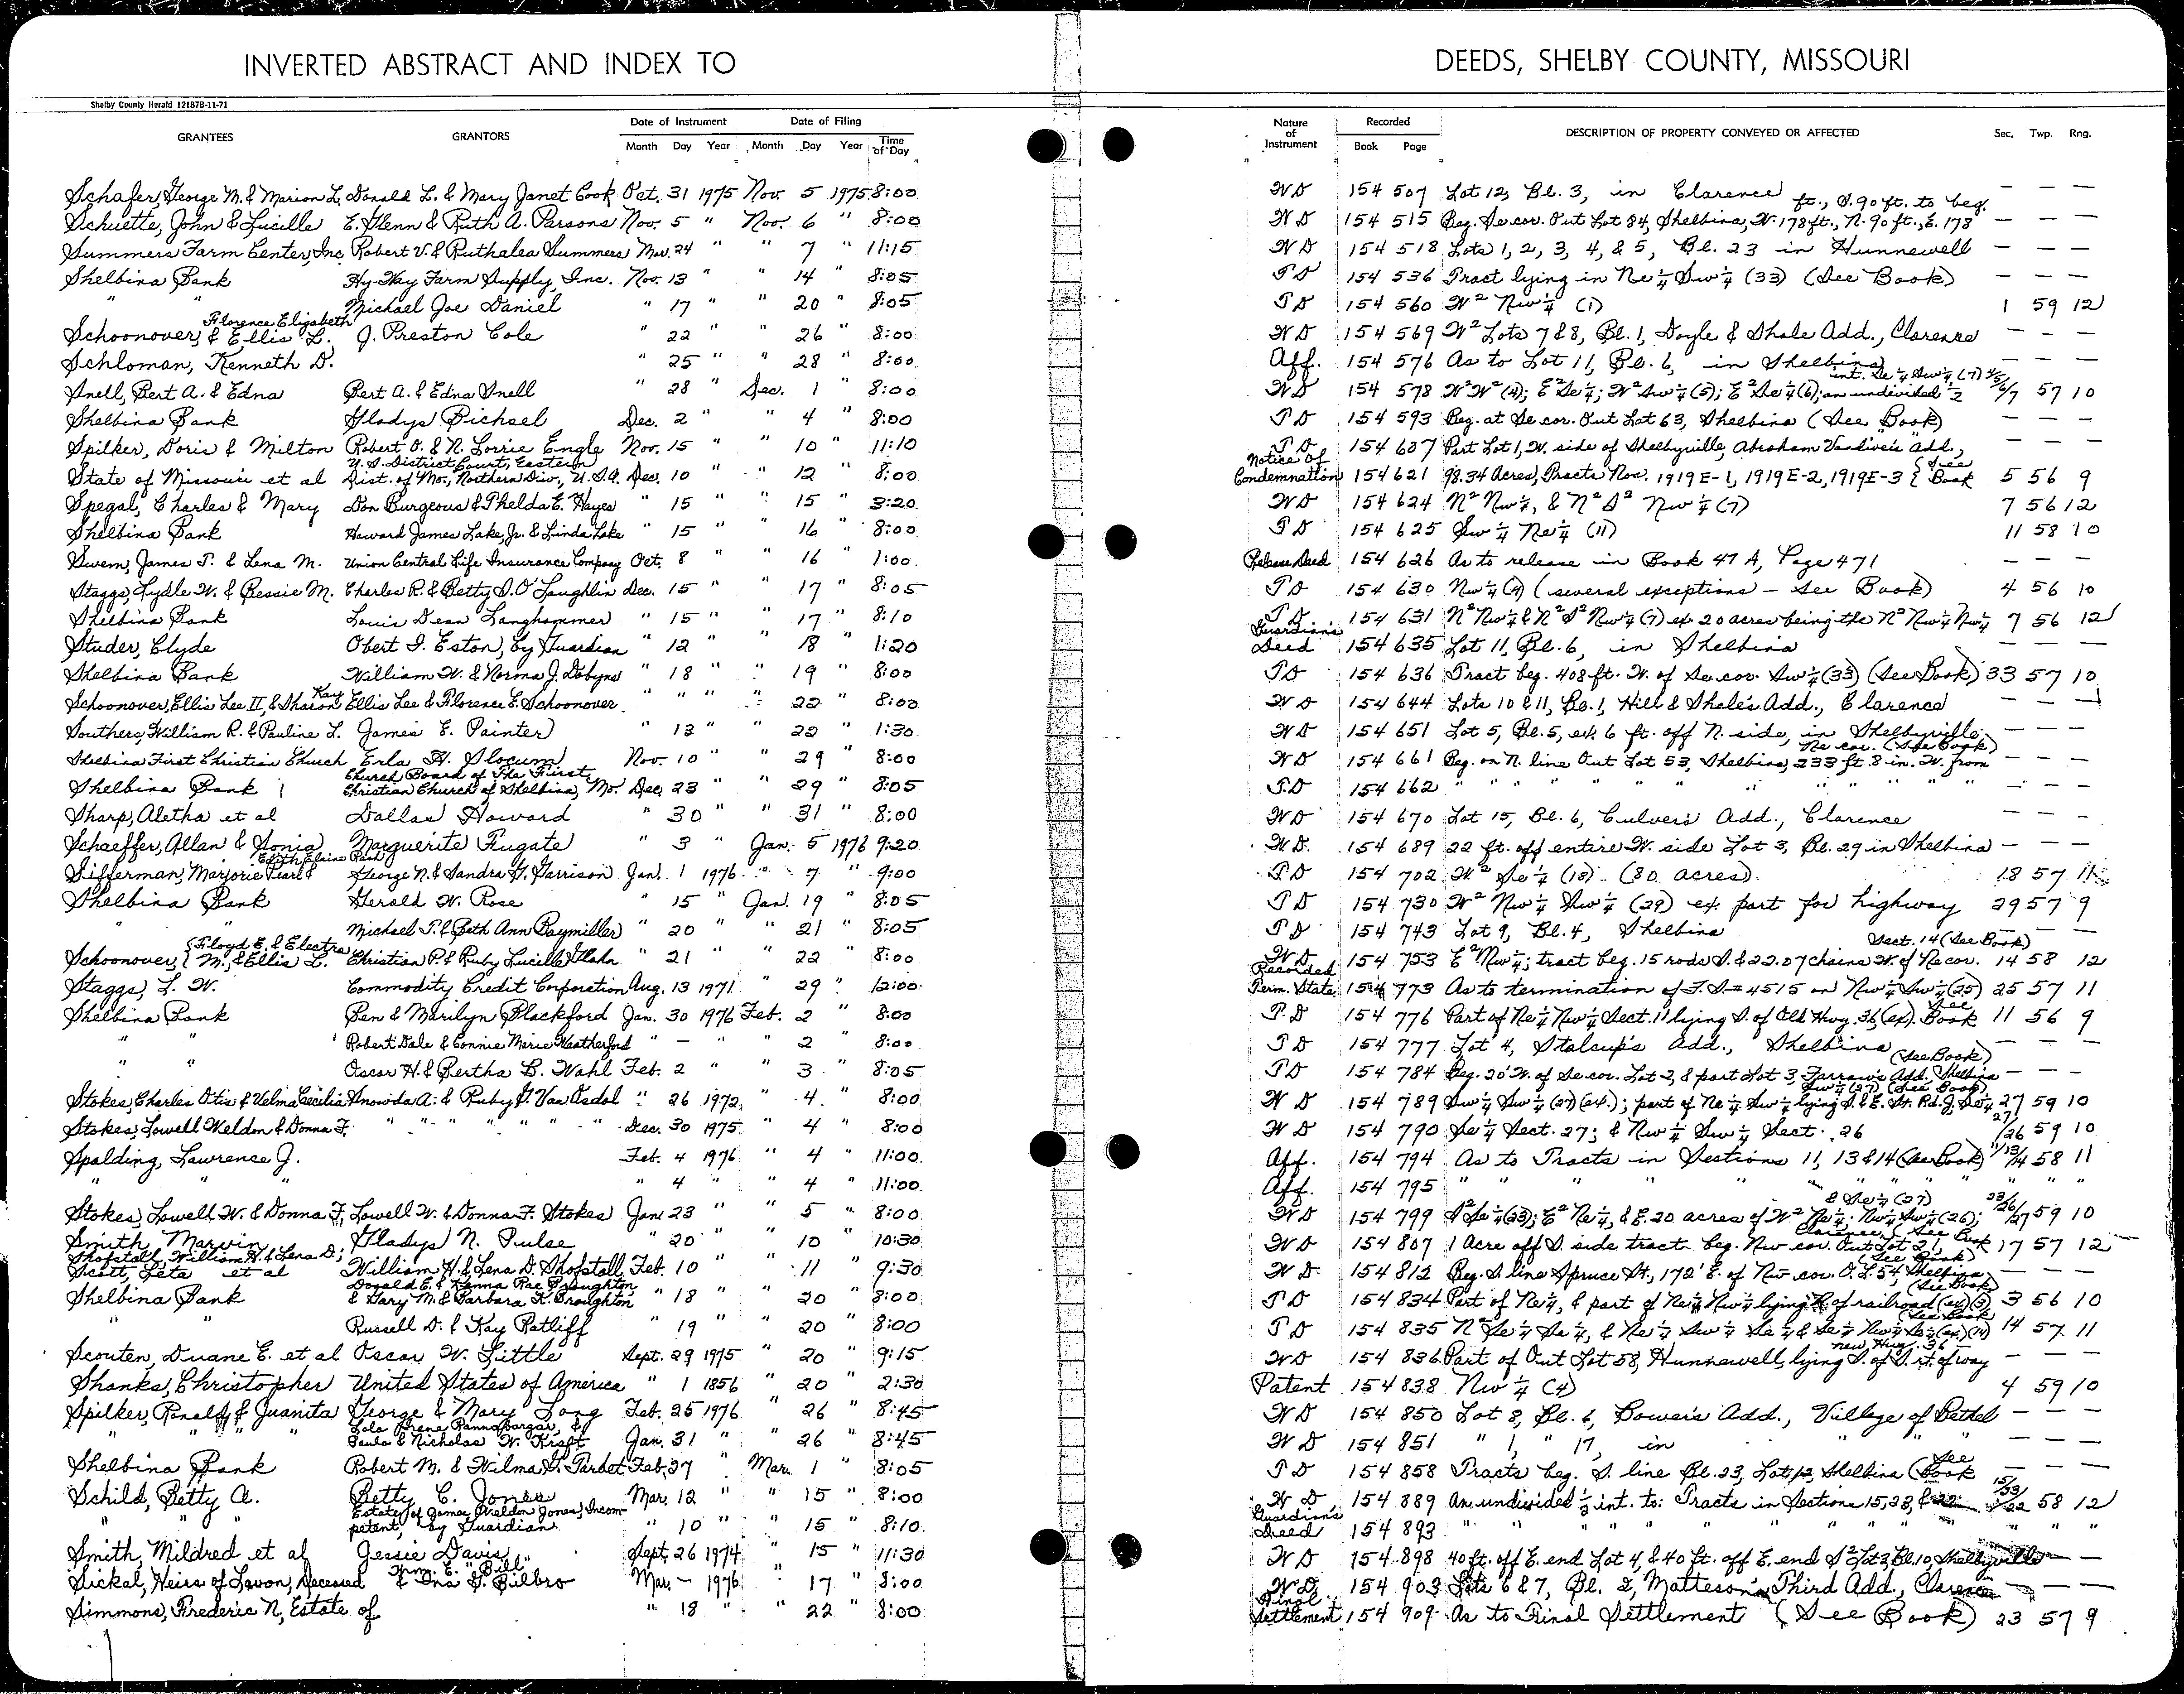 INVERTED ABSTRACT AND INDEX TO DEEDS, SHELBY COUNTY, MISSOURI
Shelby County Herald 121878-11-71
GRANTEES GRANTORS Date of Instrument Month Day Year Date of Filing Month Day Year Time of Day Nature of Instrument Recorded Book Page DESCRIPTION OF PROPERTY CONVEYED OR AFFECTED Sec. Twp. Rng.
Schafer, George M. & Marion L. Donald L. & Mary Janet Cook Oct. 31 1975 Nov. 5 1975 8:00 WD 154 507 Lot 12, Bl. 3, in Clarence — — —
Schuette, John & Lucille E. Glenn & Ruth A. Parsons Nov. 5 " Nov. 6 " 8:00 WD 154 515 Beg. Se cor. Out Lot 84, Shelbina, W. 178 ft., N. 90 ft., E. 178 ft., S. 90 ft. to beg. — — —
Summers Farm Center, Inc. Robert V. & Ruthalea Summers Mar. 24 " " 7 " 11:15 WD 154 518 Lots 1, 2, 3, 4, & 5, Bl. 23 in Hunnewell — — —
Shelbina Bank Hy-Way Farm Supply, Inc. Nov. 13 " " 14 " 8:05 TD 154 536 Tract lying in Ne 1/4 Sw 1/4 (33) (See Book) — — —
" " Michael Joe Daniel " 17 " " 20 " 8:05 TD 154 560 W² Nw 1/4 (1) 1 59 12
Schoonover, Florence Elizabeth & Ellis L. J. Preston Cole " 22 " " 26 " 8:00 WD 154 569 W² Lots 7 & 8, Bl. 1, Doyle & Shale Add., Clarence — — —
Schloman, Kenneth D. " 25 " " 28 " 8:00 Aff. 154 576 As to Lot 11, Bl. 6, in Shelbina — — —
Snell, Bert A. & Edna Bert A. & Edna Snell " 28 " Dec. 1 " 8:00 WD 154 578 W² W² (4); E² Se 1/4; W² Sw 1/4 (5); E² Se 1/4 (6); an undivided 1/2 int. Se 1/4 Sw 1/4 (7) 4/5/6/7 57 10
Shelbina Bank Gladys Bichsel Dec. 2 " " 4 " 8:00 TD 154 593 Beg. at Se cor. Out Lot 63, Shelbina (See Book) — — —
Spilker, Doris & Milton Robert O. & N. Lorrie Engle Nov. 15 " " 10 " 11:10 TD 154 607 Part Lot 1, W. side of Shelbyville, Abraham Vandiver's Add., — — —
State of Missouri et al U.S. District Court, Eastern Dist. of Mo., Northern Div., U.S.A. Dec. 10 " " 12 " 8:00 Notice of Condemnation 154 621 98.34 Acres, Tracts Nos. 1919 E-1, 1919 E-2, 1919E-3 { See Book 5 56 9
Spegal, Charles & Mary Don Burgeous & Thelda E. Hayes " 15 " 15 3:20 WD 154 624 N² Nw 1/4, & N² S² Nw 1/4 (7) 7 56 12
Shelbina Bank Howard James Lake, Jr. & Linda Lake " 15 " " 16 " 8:00 TD 154 625 Sw 1/4 Ne 1/4 (11) 11 58 10
Swem, James T. & Lena M. Union Central Life Insurance Company Oct. 8 " " 16 " 1:00 Release Deed 154 626 As to release in Book 47 A, Page 471 — —
Staggs, Lydle W. & Bessie M. Charles R. & Betty S. O'Laughlin Dec. 15 " " 17 " 8:05 TD 154 630 Nw 1/4 (4) (several exceptions — See Book) 4 56 10
Shelbina Bank Louis Dean Langhammer " 15 " " 17 " 8:10 TD 154 631 N² Nw 1/4 & N² S² Nw 1/4 (7) ex. 20 acres being the N² Nw 1/4 Nw 1/4 7 56 12
Studer, Clyde Obert I. Eston, by Guardian " 12 " " 18 " 1:20 Guardian's Deed 154 635 Lot 11, Bl. 6, in Shelbina — — —
Shelbina Bank William W. & Norma J. Dobyns " 18 " " 19 " 8:00 TD 154 636 Tract beg. 408 ft. W. of Se cor. Sw 1/4 (33) (See Book) 33 57 10
Schoonover, Ellis Lee II, & Sharon Kay Ellis Lee & Florence E. Schoonover " " " " 22 " 8:00 WD 154 644 Lots 10 & 11, Bl. 1, Hill & Shale's Add., Clarence — — —
Southers, William R. & Pauline L. James E. Painter " 13 " " 22 " 1:30 WD 154 651 Lot 5, Bl. 5, ex. 6 ft. off N. side, in Shelbyville — — —
Shelbina First Christian Church Erla H. Slocum Nov. 10 " " 29 " 8:00 WD 154 661 Beg. on N. line Out Lot 53, Shelbina, 233 ft. 8 in. W. from Ne cor. (See Book) — — —
Shelbina Bank Church Board of The First Christian Church of Shelbina, Mo. Dec. 23 " " 29 " 8:05 TD 154 662 " " " " " " " " — — —
Sharp, Aletha et al Dallas Howard " 30 " " 31 " 8:00 WD 154 670 Lot 15, Bl. 6, Culver's Add., Clarence — — —
Schaeffer, Allan & Sonia Marguerite Fugate " 3 " Jan. 5 1976 9:20 WD 154 689 22 ft. off entire W. side Lot 3, Bl. 29 in Shelbina — — —
Sifferman, Marjorie Pearl & Edith Elaine Rash George N. & Sandra G. Garrison Jan. 1 1976 " 7 " 9:00 TD 154 702 W² Se 1/4 (18) (80 acres) 18 57 11
Shelbina Bank Gerald W. Rose " 15 " Jan. 19 " 8:05 TD 154 730 W² Nw 1/4 Sw 1/4 (29) ex. part for highway 29 57 9
" " Michael T. & Beth Ann Baymiller " 20 " " 21 " 8:05 TD 154 743 Lot 9, Bl. 4, Shelbina — —
Schoonover, { Floyd E. & Electra M., & Ellis L. Christian P. & Ruby Lucille Hahn " 21 " " 22 8:00 WD 154 753 E² Nw 1/4; tract beg. 15 rods S. & 22.07 chains W. of Ne cor. Sect. 14 (See Book) 14 58 12
Staggs, L. W. Commodity Credit Corporation Aug. 13 1971 " 29 " 12:00 Recorded Term. State. 154 773 As to termination of F.S. # 4515 on Nw 1/4 Sw 1/4 (25) 25 57 11
Shelbina Bank Ben & Marilyn Blackford Jan. 30 1976 Feb. 2 " 8:00 TD 154 776 Part of Ne 1/4 Nw 1/4 Sect. 11 lying S. of Old Hwy. 36 (ex). See Book 11 56 9
" " Robert Dale & Connie Marie Weatherford " — " " 2 8:00 TD 154 777 Lot 4, Stalcup's Add., Shelbina — — —
" " Oscar H. & Bertha B. Wahl Feb. 2 " " 3 " 8:05 TD 154 784 Beg. 20' W. of Se cor. Lot 2, & part Lot 3, Farrow's Add., Shelbina (See Book) — — —
Stokes, Charles Otis & Velma Cecilia Snowda A. & Ruby G. Van Osdol " 26 1972 " 4 8:00 WD 154 789 Sw 1/4 Sw 1/4 (27) (ex.); part of Ne 1/4 Sw 1/4 lying S. & E. St. Rd. J, Se 1/4 Sw 1/4 (27) (See Book) 27 59 10
Stokes, Lowell Weldon & Donna F. " " " " " " Dec. 30 1975 " 4 " 8:00 WD 154 790 Se 1/4 Sect. 27; & Nw 1/4 Sw 1/4 Sect. 26 27/26 59 10
Spalding, Lawrence J. Feb. 4 1976 " 4 " 11:00 Aff. 154 794 As to Tracts in Sections 11, 13 & 14 (See Book) 11/13/14 58 11
" " " " 4 " " 4 " 11:00 Aff. 154 795 " " " " " " " " "
Stokes, Lowell W. & Donna F. Lowell W. & Donna F. Stokes Jan. 23 " " 5 " 8:00 WD 154 799 S² Se 1/4 (23); E² Ne 1/4, & E. 20 acres of W² Ne 1/4; Nw 1/4 Sw 1/4 (26); & Se 1/4 (27) 23/26/27 59 10
Smith, Marvin Gladys N. Pulse " 20 " " 10 " 10:30 WD 154 807 1 Acre off S. side tract beg. Nw cor. Out Lot 21, Clarence, (See Book) 17 57 12
Shofstall, William H. & Lena D.; Scott, Leta et al William H. & Lena D. Shofstall Feb. 10 " " 11 " 9:30 WD 154 812 Beg. S. line Spruce St., 172' E. of Nw cor. O.L. 54, Shelbina (See Book) — — —
Shelbina Bank Donald E. & Hanna Rae Broughton & Gary M. & Barbara K. Broughton " 18 " " 20 " 8:00 TD 154 834 Part of Ne 1/4, & part of Ne 1/4 Nw 1/4 lying of railroad (ex) (3) (See Book) 3 56 10
" " Russell D. & Kay Ratliff " 19 " " 20 " 8:00 TD 154 835 N² Se 1/4 Se 1/4, & Ne 1/4 Sw 1/4 Se 1/4 & Se 1/4 Nw 1/4 Se 1/4 (ex.) (14) (See Book) 14 57 11
Scouten, Duane E. et al Oscar W. Little Sept. 29 1975 " 20 " 9:15 WD 154 836 Part of Out Lot 58, Hunnewell, lying S. of S. rt. of way new Hwy. 36 — — —
Shanks, Christopher United States of America " 1 1856 " 20 " 2:30 Patent 154 838 Nw 1/4 (4) 4 59 10
Spilker, Ronald & Juanita George & Mary Long Feb. 25 1976 " 26 " 8:45 WD 154 850 Lot 8, Bl. 6, Bower's Add., Village of Bethel — — —
" " " " Lola Irene Pannabarger, & Paula & Nicholas W. Kraft Jan. 31 " " 26 " 8:45 WD 154 851 " 1, " 17, in " " " — — —
Shelbina Bank Robert M. & Wilma G. Tarbet Feb. 27 " Mar. 1 " 8:05 TD 154 858 Tracts beg. S. line Bl. 23, Lot 12, Shelbina (See Book — — —
Schild, Betty A. Betty C. Jones Mar. 12 " " 15 " 8:00 WD 154 889 An undivided 1/2 int. to: Tracts in Sections 15, 23, & 22 15/23/22 58 12
" " " Estate of James Weldon Jones, Incompetent, by Guardian " 10 " " 15 " 8:10 Guardian's Deed 154 893 " " " " " " " " " " "
Smith, Mildred et al Jessie Davis Sept. 26 1974 " 15 " 11:30 WD 154 898 40 ft. off E. end Lot 4, & 40 ft. off E. end S² Lot 3, Bl. 10, Shelbyville — —
Sickal, Heirs of Lavon, Deceased Thm. E. "Bill" & Ina G. Bilbro Mar. — 1976 " 17 " 8:00 WD 154 903 Lots 6 & 7, Bl. 2, Matteson's Third Add., Clarence — — —
Simmons, Frederic N., Estate of " 18 " " 22 " 8:00 Final Settlement 154 909 As to Final Settlement (See Book) 23 57 9